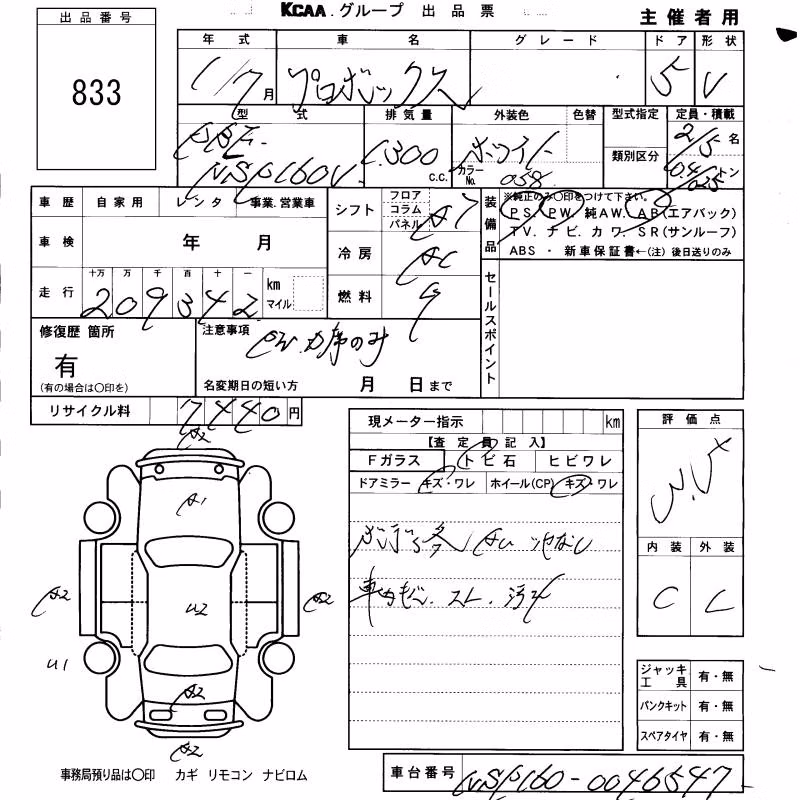 KCAA グループ 出品票
主催者用
出品番号
833
年式 車名 グレード ドア 形状
1/7月 プロボックス 5 V
型式 排気量 外装色 色替 型式指定 定員・積載
DBE-
NSP160V 1,300 c.c. ホワイト カラーNo. 058 類別区分 2/5名
0.4/0.25トン
車歴 自家用 レンタ 事業.営業車
シフト フロア コラム パネル A7
装備品 ※純正のみ○印をつけて下さい。
PS. PW. 純AW. AB(エアバック)
TV. ナビ. カワ. SR(サンルーフ)
ABS ・ 新車保証書←(注) 後日送りのみ
車検 年 月
冷房 AC
走行 十万 万 千 百 十 一
209342 km マイル
燃料 G
セールスポイント
修復歴 箇所
有
(有の場合は○印を)
注意事項
PW.カ席のみ
名変期日の短い方 月 日まで
リサイクル料 7440円
現メーター指示 km
【査定員記入】
Fガラス トビ石 ヒビワレ
ドアミラー キズ・ワレ ホイール(CP) キズ・ワレ
評価点
内装 外装
C C
A2
A1
A2
U2
A2
U1
A2
A2
ジャッキ工具 有・無
パンクキット 有・無
スペアタイヤ 有・無
事務局預り品は○印 カギ リモコン ナビロム
車台番号 NSP160-0046547